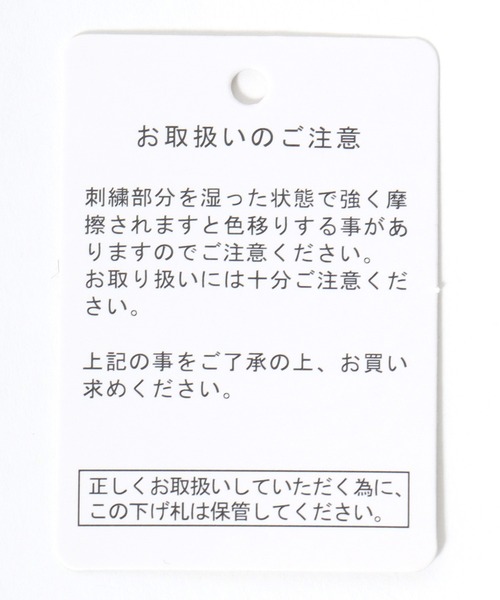 お取扱いのご注意
刺繍部分を湿った状態で強く摩
擦されますと色移りする事があ
りますのでご注意ください。
お取り扱いには十分ご注意くだ
さい。
上記の事をご了承の上、お買い
求めください。
正しくお取扱いしていただく為に、
この下げ札は保管してください。